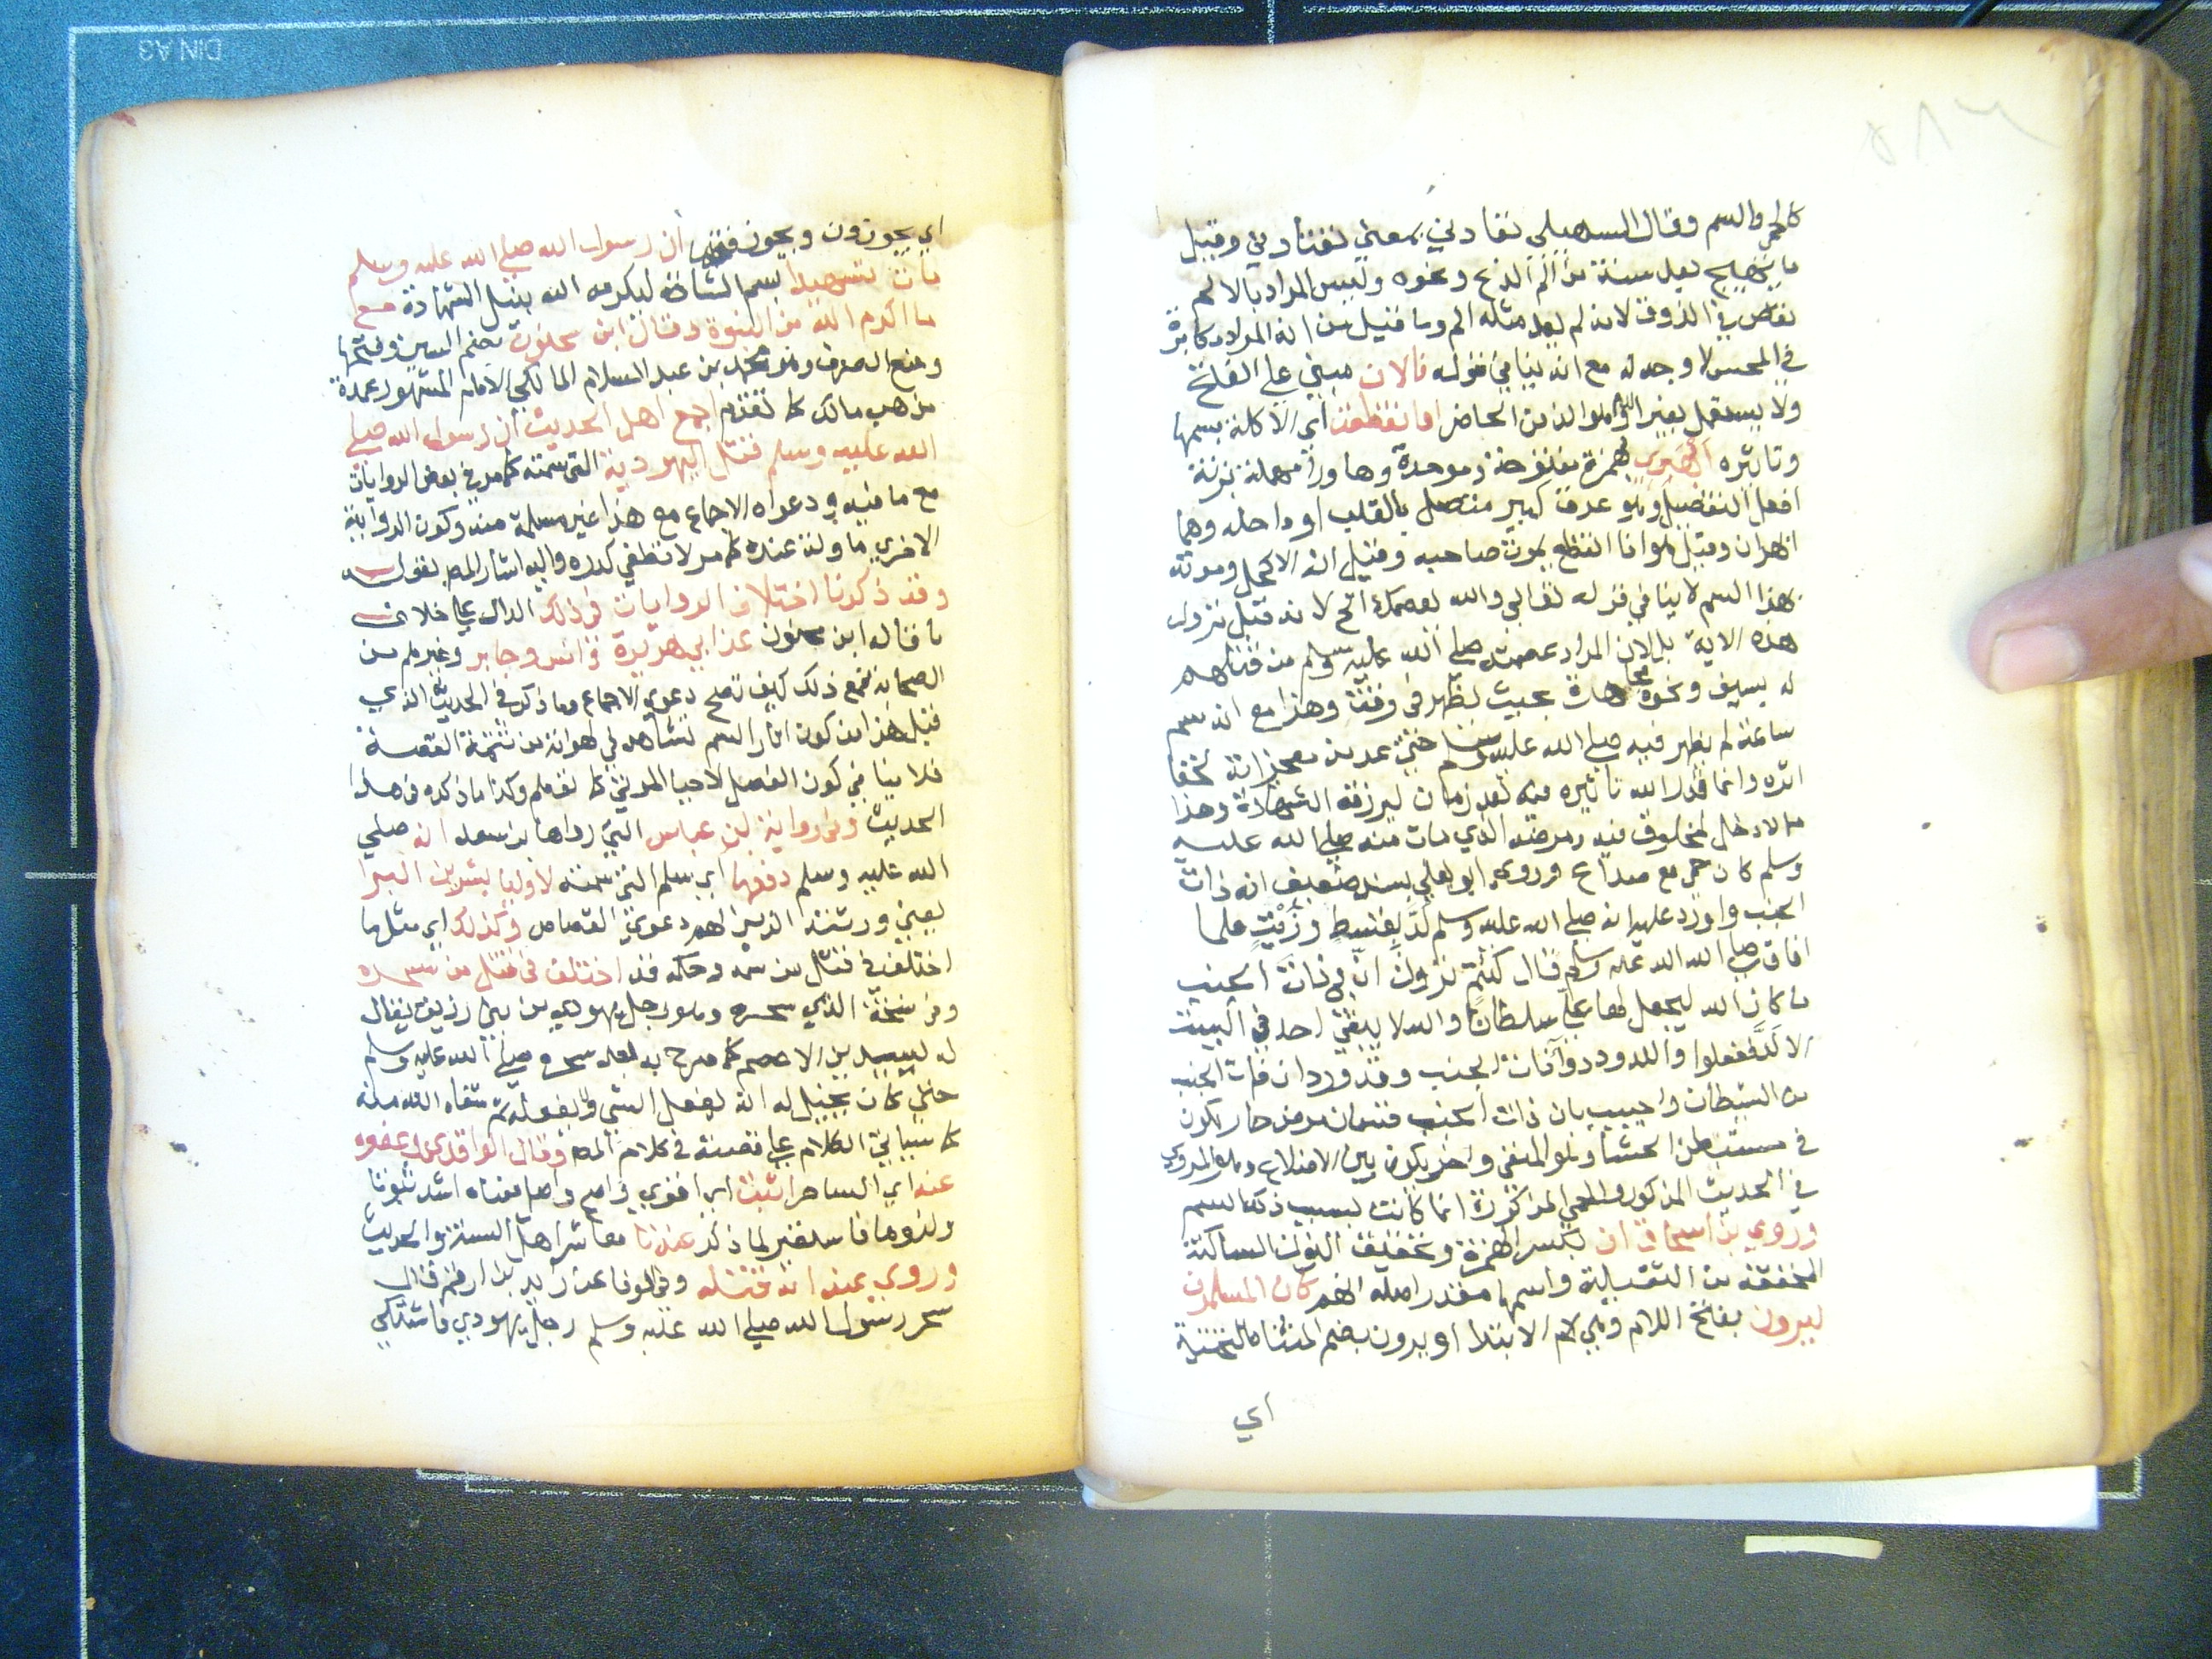 كالحمى والسم وقال السهيلي تعادني بمعنى تعتادني وقيل
ما يهيج بعد سنة من ألم الذبح ونحوه وليس المراد بالالم
نقاص في الذوق لانه لم يعد مثله الم وما قيل من انه المراد مكابرة
في المحسن لا وجه له مع انه ينافي قوله فالان مبني علي الفتح
ولا يستعمل بغير ال وهو الزمن الحاضر اوان قطعت اي الاكلة بسمها
وتاثيره ابهري بهمزة مفتوحة وموحدة وها ورا مهملة بزنة
افعل التفضيل وهو عرق كبير متصل بالقلب او داخله وهما
ابهران وقيل هو اذا انقطع يموت صاحبه وقيل انه الاكحل وموته
بهذا السم لا ينافي قوله تعالى والله يعصمك الخ لانه قبل نزول
هذه الاية بل لان المراد عصمته صلي الله عليه وسلم من قتلهم
له بسيف ونحوه مجاهرة بحيث تظهر في وقته وهذا مع انه سم
ساعة لم يظهر فيه صلي الله عليه وسلم حتي عد من معجزاته تخفا
اثره وانما قدر الله تاثيره فيه بعد زمان ليرزقه الشهادة وهذا
مما لا دخل لمخلوق فيه ومرضه الذي مات منه صلي الله عليه
وسلم كان حمى مع صداع وروى ابو يعلي بسند ضعيف انه ذات
الجنب واورد عليه انه صلي الله عليه وسلم لد بقسط وزيت فلما
افاق صلي الله عليه وسلم قال كنتم ترون ان بي ذات الجنب
ما كان الله ليجعل لها علي سلطانا والله لا يبقي احد في البيت
الا لد ففعلوا واللدود دوا ذات الجنب وقد ورد ان ذات الجنب
من الشيطان واجيب بان ذات الجنب قسمان مرض حار يكون
في مستبطن الحشا وهو المنفي واخر يكون بين الاضلاع وهو المروي
في الحديث المذكور والحمى المذكورة انما كانت بسبب ذلك السم
وروي بن اسحاق ان بكسر الهمزة وتخفيف النون الساكنة
المخففة من الثقيلة واسمها مقدر اصله انهم كان المسلمون
ليرون بفتح اللام وهي لام الابتدا او يرون بضم المثناة التحتية
اي
اي يجوزون ويجوز فتحها ان رسول الله صلي الله عليه وسلم
مات شهيدا بسم الشاة ليكرمه الله بنيل الشهادة مع
ما اكرم الله من النبوة وقال ابن سحنون بضم السين وفتحها
ومنع الصرف وهو محمد بن عبد السلام المالكي الامام المشهور عمدة
مذهب مالك كما تقدم اجمع اهل الحديث ان رسول الله صلي
الله عليه وسلم قتل اليهودية التي سمته كما مر في بعض الروايات
مع ما فيه ودعواه الاجماع مع هذا غير مسلمة منه وكون الرواية
الاخرى ماولة عنده كما مر لا تطفي كدره واليه اشار المص بقوله
وقد ذكرنا اختلاف الروايات في ذلك الدال علي خلاف
ما قاله ابن سحنون عن ابي هريرة وانس وجابر وغيرهم من
الصحابة فمع ذلك كيف تصلح دعوي الاجماع وما ذكره في الحديث الذي
قبل هذا من كون اثار السم تشاهد في لهواته من تتمة القصة
فلا ينافي كون الفصل لاحيا الموتى كما تقدم وكذا ما ذكره في هذا
الحديث وفي رواية ابن عباس التي رواها بن سعد انه صلي
الله عليه وسلم دفعها اي سلم التي سمته لاوليا بشر بن البرا
يعني ورثته الذين لهم دعوي القصاص وكذلك اي مثل ما
اختلف في قتل من سمه وحكمه قد اختلف في قتل من سحره
وفي نسخة الذي سحره وهو رجل يهودي من بني زريق يقال
له لبيد بن الاعصم كما صرح به بعد سحره صلي الله عليه وسلم
حتي كان يخيل له انه يفعل الشي ولا يفعله ثم شفاه الله منه
كما سياتي الكلام علي قصته في كلام المص وقال الواقدي وعفوه
عنه اي الساحر اثبت اي اقوي واصح واصل معناه اشد ثبوتا
ولزوما فاستعير لما ذكر عندنا معاشر اهل السنة والحديث
وروي عنه انه قتله وفي الوفا عن زيد بن ارقم قال
سحر رسول الله صلي الله عليه وسلم رجل يهودي فاشتكي